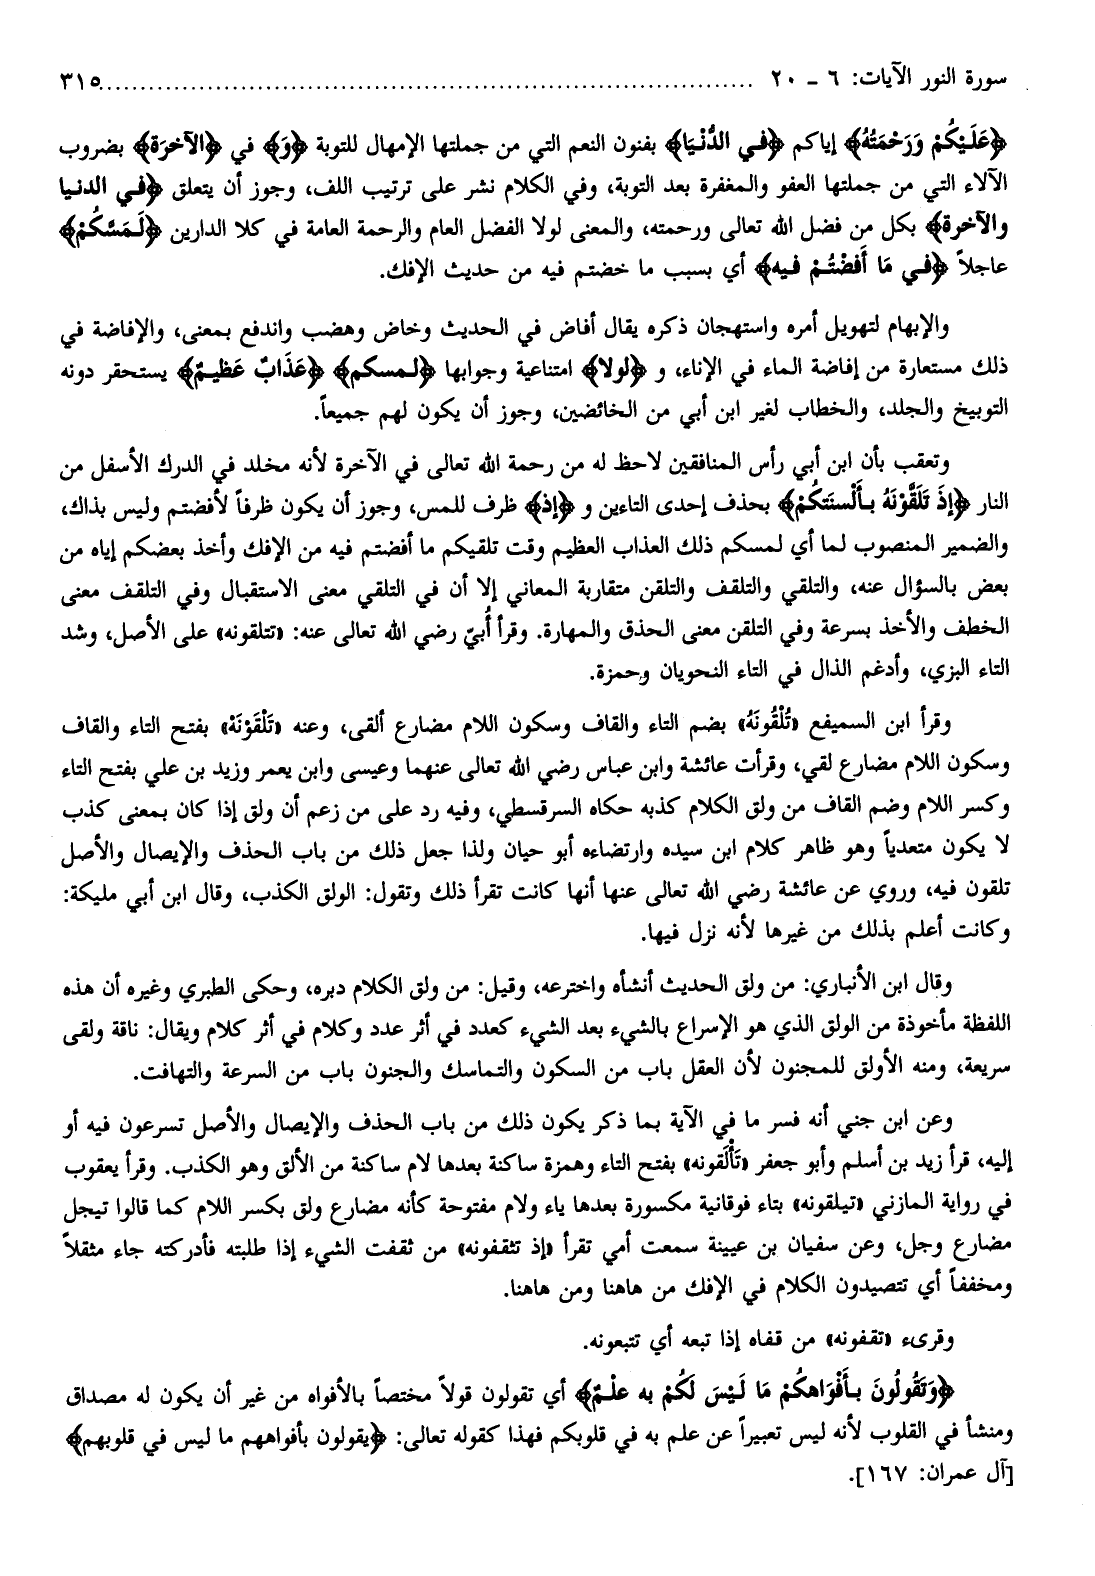 سورة النور الآيات: ٦ ـ ٢٠ ................................................................................ ٣١٥
﴿عَلَيْكُمْ وَرَحْمَتُهُ﴾ إياكم ﴿فـي الدُّنْيَا﴾ بفنون النعم التي من جملتها الإمهال للتوبة ﴿وَ﴾ في ﴿الآخرَة﴾ بضروب
الآلاء التي من جملتها العفو والمغفرة بعد التوبة، وفي الكلام نشر على ترتيب اللف، وجوز أن يتعلق ﴿في الدنيا
والآخرة﴾ بكل من فضل الله تعالى ورحمته، والمعنى لولا الفضل العام والرحمة العامة في كلا الدارين ﴿لَـمَسَّكُمْ﴾
عاجلاً ﴿فـي مَا أَفَضْتُـمْ فيه﴾ أي بسبب ما خضتم فيه من حديث الإفك.
والإبهام لتهويل أمره واستهجان ذكره يقال أفاض في الحديث وخاض وهضب واندفع بـمعنى، والإفاضة في
ذلك مستعارة من إفاضة الماء في الإناء، و ﴿لولا﴾ امتناعية وجوابها ﴿لـمسكم﴾ ﴿عَذَابٌ عَظيـمٌ﴾ يستحقر دونه
التوبيخ والجلد، والخطاب لغير ابن أبي من الخائضين، وجوز أن يكون لهم جميعاً.
وتعقب بأن ابن أبي رأس المنافقين لاحظ له من رحمة الله تعالى في الآخرة لأنه مخلد في الدرك الأسفل من
النار ﴿إذَ تَلَقَّوْنَهُ بـأَلْسنَتكُمْ﴾ بحذف إحدى التاءين و ﴿إذ﴾ ظرف للمس، وجوز أن يكون ظرفاً لأفضتم وليس بذاك،
والضمير المنصوب لما أي لمسكم ذلك العذاب العظيم وقت تلقيكم ما أفضتم فيه من الإفك وأخذ بعضكم إياه من
بعض بالسؤال عنه، والتلقي والتلقف والتلقن متقاربة المعاني إلا أن في التلقي معنى الاستقبال وفي التلقف معنى
الخطف والأخذ بسرعة وفي التلقن معنى الحذق والمهارة. وقرأ أُبيّ رضي الله تعالى عنه: «تتلقونه» على الأصل، وشد
التاء البزي، وأدغم الذال في التاء النحويان وحمزة.
وقرأ ابن السميفع «تُلْقُونَهُ» بضم التاء والقاف وسكون اللام مضارع ألقى، وعنه «تَلْقَوْنَهُ» بفتح التاء والقاف
وسكون اللام مضارع لقي، وقرأت عائشة وابن عباس رضي الله تعالى عنهما وعيسى وابن يعمر وزيد بن علي بفتح التاء
وكسر اللام وضم القاف من ولق الكلام كذبه حكاه السرقسطي، وفيه رد على من زعم أن ولق إذا كان بـمعنى كذب
لا يكون متعدياً وهو ظاهر كلام ابن سيده وارتضاءه أبو حيان ولذا جعل ذلك من باب الحذف والإيصال والأصل
تلقون فيه، وروي عن عائشة رضي الله تعالى عنها أنها كانت تقرأ ذلك وتقول: الولق الكذب، وقال ابن أبي مليكة:
وكانت أعلم بذلك من غيرها لأنه نزل فيها.
وقال ابن الأنباري: من ولق الحديث أنشأه واخترعه، وقيل: من ولق الكلام دبره، وحكى الطبري وغيره أن هذه
اللفظة مأخوذة من الولق الذي هو الإسراع بالشيء بعد الشيء كعدد في أثر عدد وكلام في أثر كلام ويقال: ناقة ولقى
سريعة، ومنه الأولق للمجنون لأن العقل باب من السكون والتماسك والجنون باب من السرعة والتهافت.
وعن ابن جني أنه فسر ما في الآية بما ذكر يكون ذلك من باب الحذف والإيصال والأصل تسرعون فيه أو
إليه، قرأ زيد بن أسلم وأبو جعفر «تَأْلَقونه» بفتح التاء وهمزة ساكنة بعدها لام ساكنة من الألق وهو الكذب. وقرأ يعقوب
في رواية المازني «تيلقونه» بتاء فوقانية مكسورة بعدها ياء ولام مفتوحة كأنه مضارع ولق بكسر اللام كما قالوا تيجل
مضارع وجل، وعن سفيان بن عيينة سمعت أمي تقرأ «إذ تثقفونه» من ثقفت الشيء إذا طلبته فأدركته جاء مثقلاً
ومخففاً أي تتصيدون الكلام في الإفك من هاهنا ومن هاهنا.
وقرىء «تقفونه» من قفاه إذا تبعه أي تتبعونه.
﴿وَتَقُولُونَ بـأَفْوَاهكُمْ مَا لَـيْسَ لَكُمْ به علْـمٌ﴾ أي تقولون قولاً مختصاً بالأفواه من غير أن يكون له مصداق
ومنشأ في القلوب لأنه ليس تعبيراً عن علم به في قلوبكم فهذا كقوله تعالى: ﴿يقولون بأفواههم ما ليس في قلوبهم﴾
[آل عمران: ١٦٧].